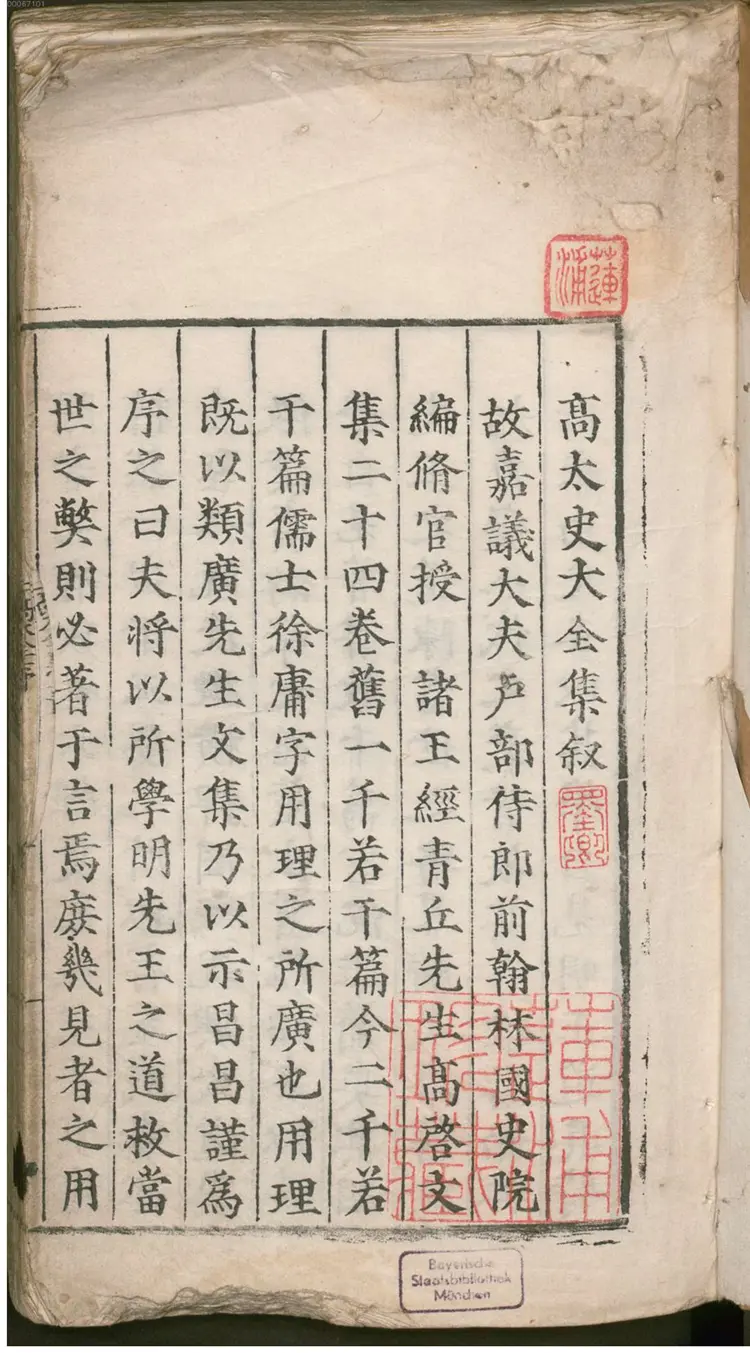 00067101
蓮涌
高太史大全集叙
故嘉議大夫戶部侍郎前翰林國史院
編脩官授　諸王經青丘先生高啓文
集二十四卷舊一千若干篇今二千若
干篇儒士徐庸字用理之所廣也用理
既以類廣先生文集乃以示昌昌謹爲
序之曰夫將以所學明先王之道救當
世之弊則必著于言焉庻幾見者之用
Bayerische
Staatsbibliothek
München